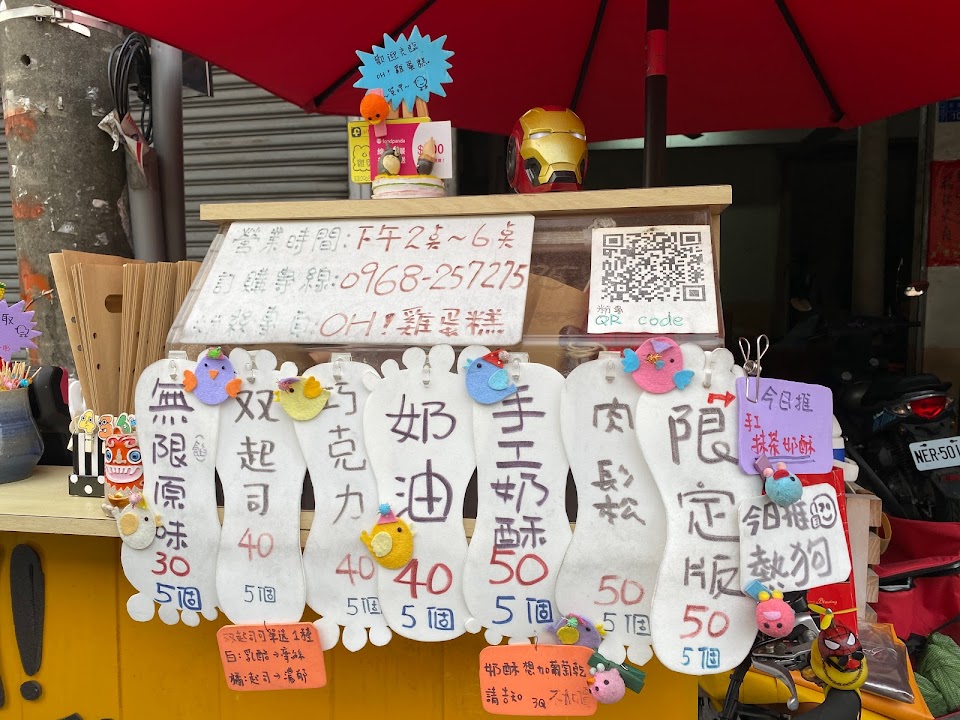 歡迎光臨
OH!雞蛋糕
foodpanda
營業時間:下午2桌～6桌
訂購專線:0968-257275
OH!雞蛋糕
粉專
QR code
取
無限原味
30
5個
双起司
40
5個
巧克力
40
5個
奶油
40
5個
手工奶酥
50
5個
肉鬆
50
5個
限定版
50
5個
今日推
手工
抹茶奶酥
今日推
熱狗
双起司可單選1種
白:乳酪→牽絲
橘:起司→濃郁
奶酥想加葡萄乾
請告知 3Q 不加價
NER-501